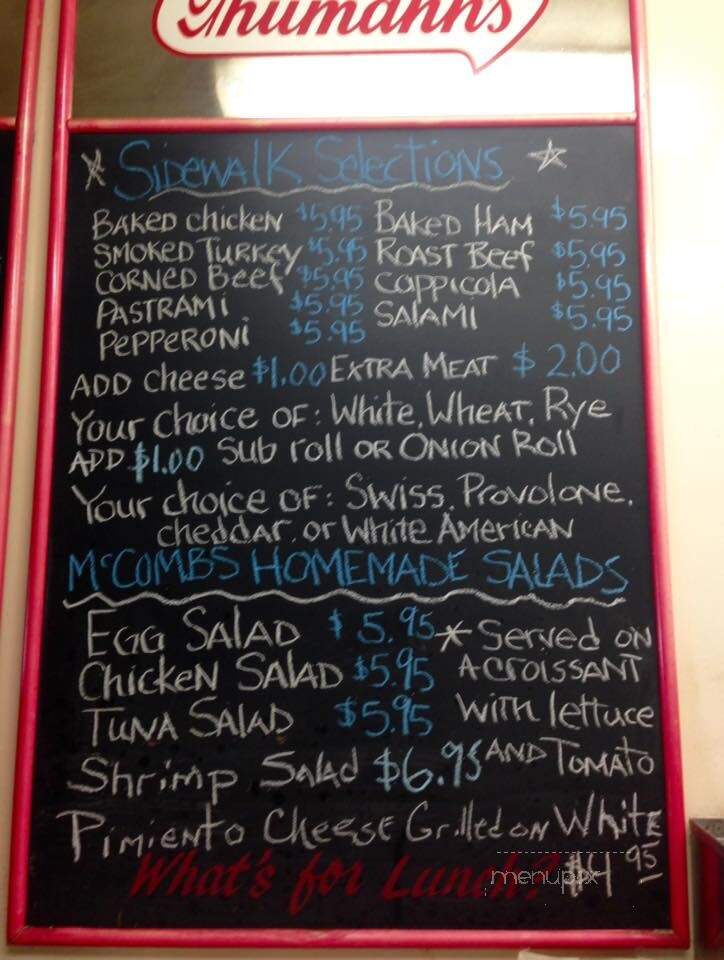 Thumann's
Sidewalk Selections
Baked chicken $5.95 Baked Ham $5.95
Smoked Turkey $5.95 Roast Beef $5.95
Corned Beef $5.95 Cappicola $5.95
Pastrami $5.95 Salami $5.95
Pepperoni $5.95
Add cheese $1.00 Extra Meat $2.00
Your choice of: White, Wheat, Rye
Add $1.00 Sub roll or Onion Roll
Your choice of: Swiss, Provolone,
cheddar, or White American
McCombs Homemade Salads
Egg Salad $5.95 * Served on
Chicken Salad $5.95 A croissant
Tuna Salad $5.95 with lettuce
Shrimp Salad $6.95 and Tomato
Pimiento Cheese Grilled on White
What's for Lunch? $4.95
menupix